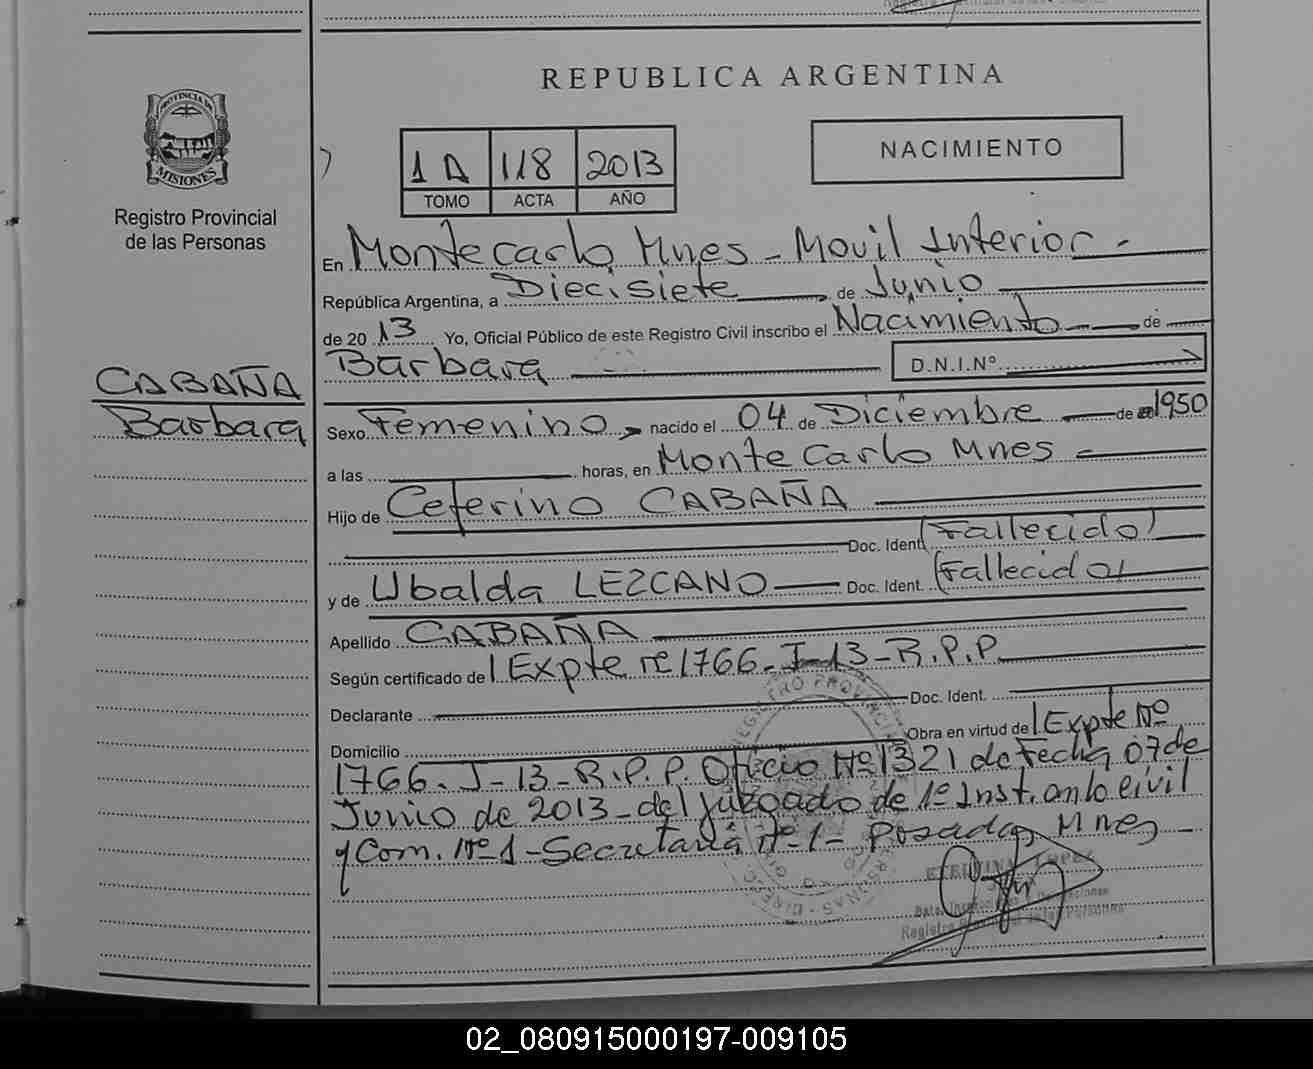 REPUBLICA ARGENTINA
PROVINCIA DE
MISIONES
Registro Provincial
de las Personas
1A 118 2013
TOMO ACTA AÑO
NACIMIENTO
En Montecarlo Mnes - Movil Interior -
República Argentina, a Diecisiete de Junio
de 2013 Yo, Oficial Público de este Registro Civil inscribo el Nacimiento de
Barbara D.N.I.Nº
CABAÑA
Barbara
Sexo Femenino nacido el 04 de Diciembre de 1950
a las horas, en Monte Carlo Mnes -
Hijo de Ceferino CABAÑA
Doc. Ident. (Fallecido)
y de Ubalda LEZCANO Doc. Ident. (Fallecido)
Apellido CABAÑA
Según certificado de Expte nº 1766-J-13-R.P.P
Declarante Doc. Ident.
Domicilio Obra en virtud de Expte Nº
1766-J-13-R.P.P. Oficio Nº 1321 de Fecha 07 de
Junio de 2013 - del Juzgado de 1º Inst. en lo civil
y Com. Nº 1 - Secretaria Nº 1 - Posadas Mnes -
LOPEZ
Registro Provincial de las Personas
02_080915000197-009105